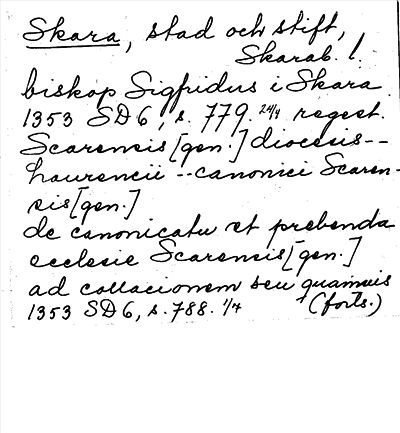 Skara, stad och stift,
Skarab. l.
biskop Sigfridus i Skara
1353 SD6, s. 779. 24/4 regest.
Scarensis [gen.] diocesis--
haurencii -- canonici Scaren-
sis [gen.]
de canonicatu et prebenda
ecclesie Scarensis [gen.]
ad collacionem seu quamuis
1353 SD6, s. 788. 1/4 (forts.)